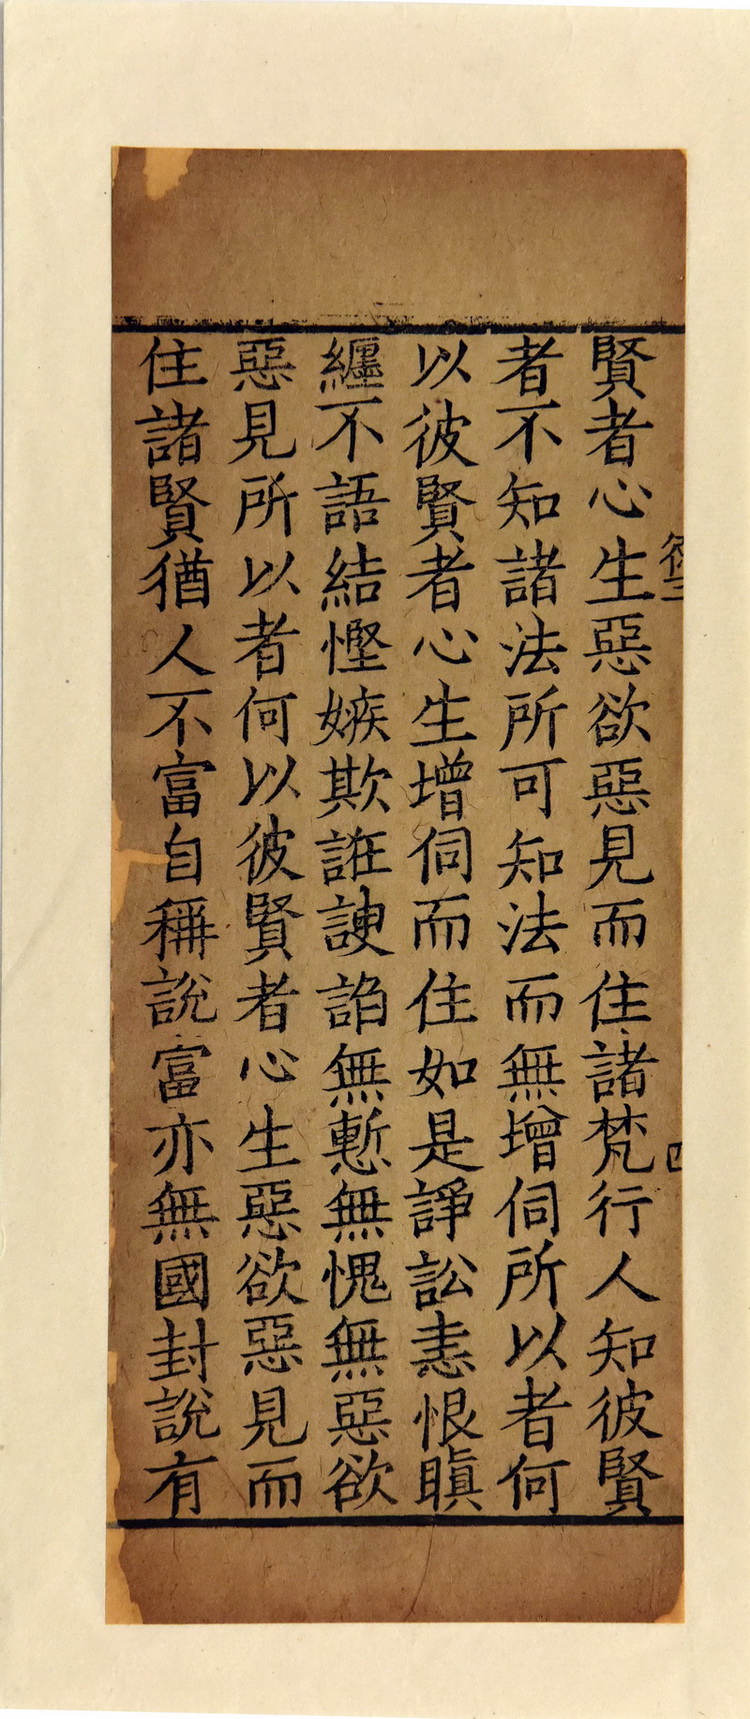 賢者心生惡欲惡見而住諸梵行人知彼賢
者不知諸法所可知法而無增伺所以者何
以彼賢者心生增伺而住如是諍訟恚恨瞋
纏不語結慳嫉欺誑諛諂無慙無愧無惡欲
惡見所以者何以彼賢者心生惡欲惡見而
住諸賢猶人不富自稱說富亦無國封說有